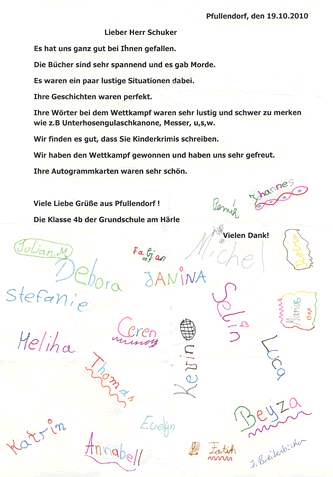 Pfullendorf, den 19.10.2010
Lieber Herr Schuker
Es hat uns ganz gut bei Ihnen gefallen.
Die Bücher sind sehr spannend und es gab Morde.
Es waren ein paar lustige Situationen dabei.
Ihre Geschichten waren perfekt.
Ihre Wörter bei dem Wettkampf waren sehr lustig und schwer zu merken
wie z.B Unterhosengulaschkanone, Messer, u,s,w.
Wir finden es gut, dass Sie Kinderkrimis schreiben.
Wir haben den Wettkampf gewonnen und haben uns sehr gefreut.
Ihre Autogrammkarten waren sehr schön.
Viele Liebe Grüße aus Pfullendorf !
Die Klasse 4b der Grundschule am Härle
Johannes
Vielen Dank!
Julian.M
Fabian
Michel
Debora
JANINA
Stefanie
Selin
Ceren
Meliha
Kevin
Luca
Thomas
Beyza
Evelyn
Katrin
Annabell
Fatih